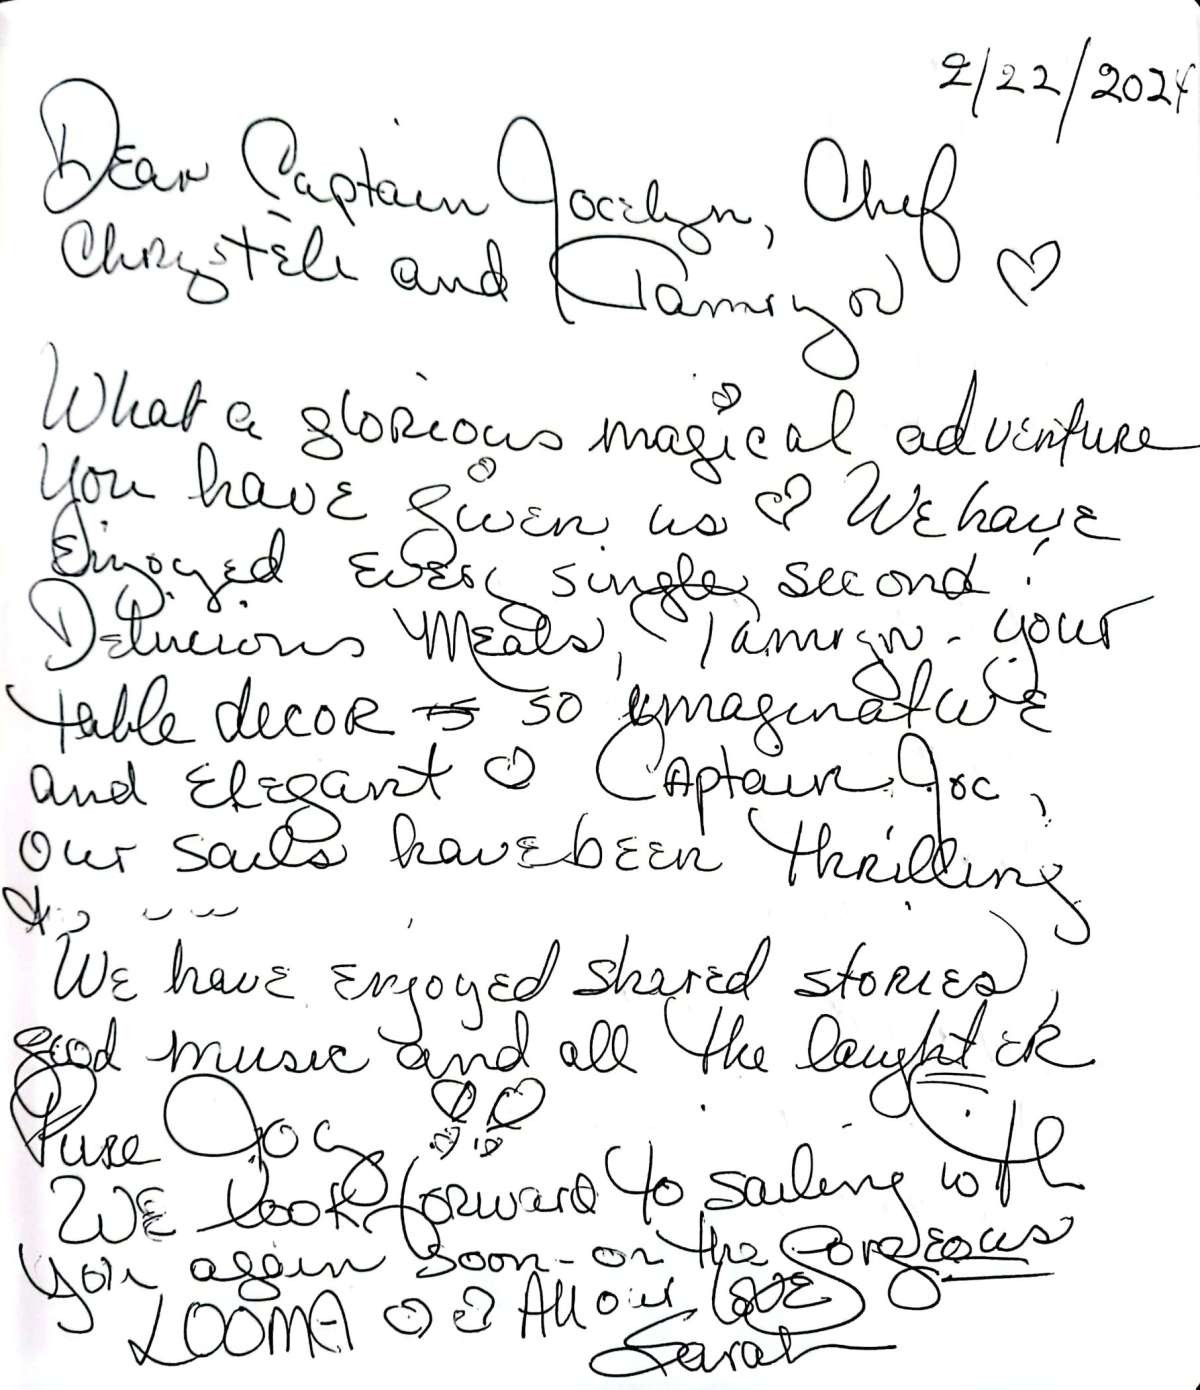 2/22/2024
Dear Captain Jocelyn, Chef
Chrystèle and Tamryn
What a glorious magical adventure
you have given us We have
Enjoyed every single second!
Delicious Meals, Tamryn - your
table decor is so imaginative
and elegant Captain Joc,
our sails have been thrilling
We have enjoyed shared stories,
good music and all the laughter
Pure Joy
We look forward to sailing with
you again soon - on the Gorgeous
LOOMA All our love
Sarah